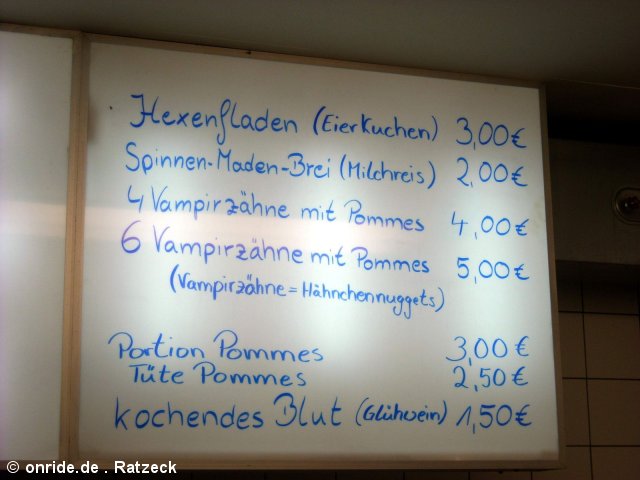 Hexenfladen (Eierkuchen) 3,00€
Spinnen-Maden-Brei (Milchreis) 2,00€
4 Vampirzähne mit Pommes 4,00€
6 Vampirzähne mit Pommes 5,00€
(Vampirzähne = Hähnchennuggets)
Portion Pommes 3,00€
Tüte Pommes 2,50€
kochendes Blut (Glühwein) 1,50€
© onride.de . Ratzeck